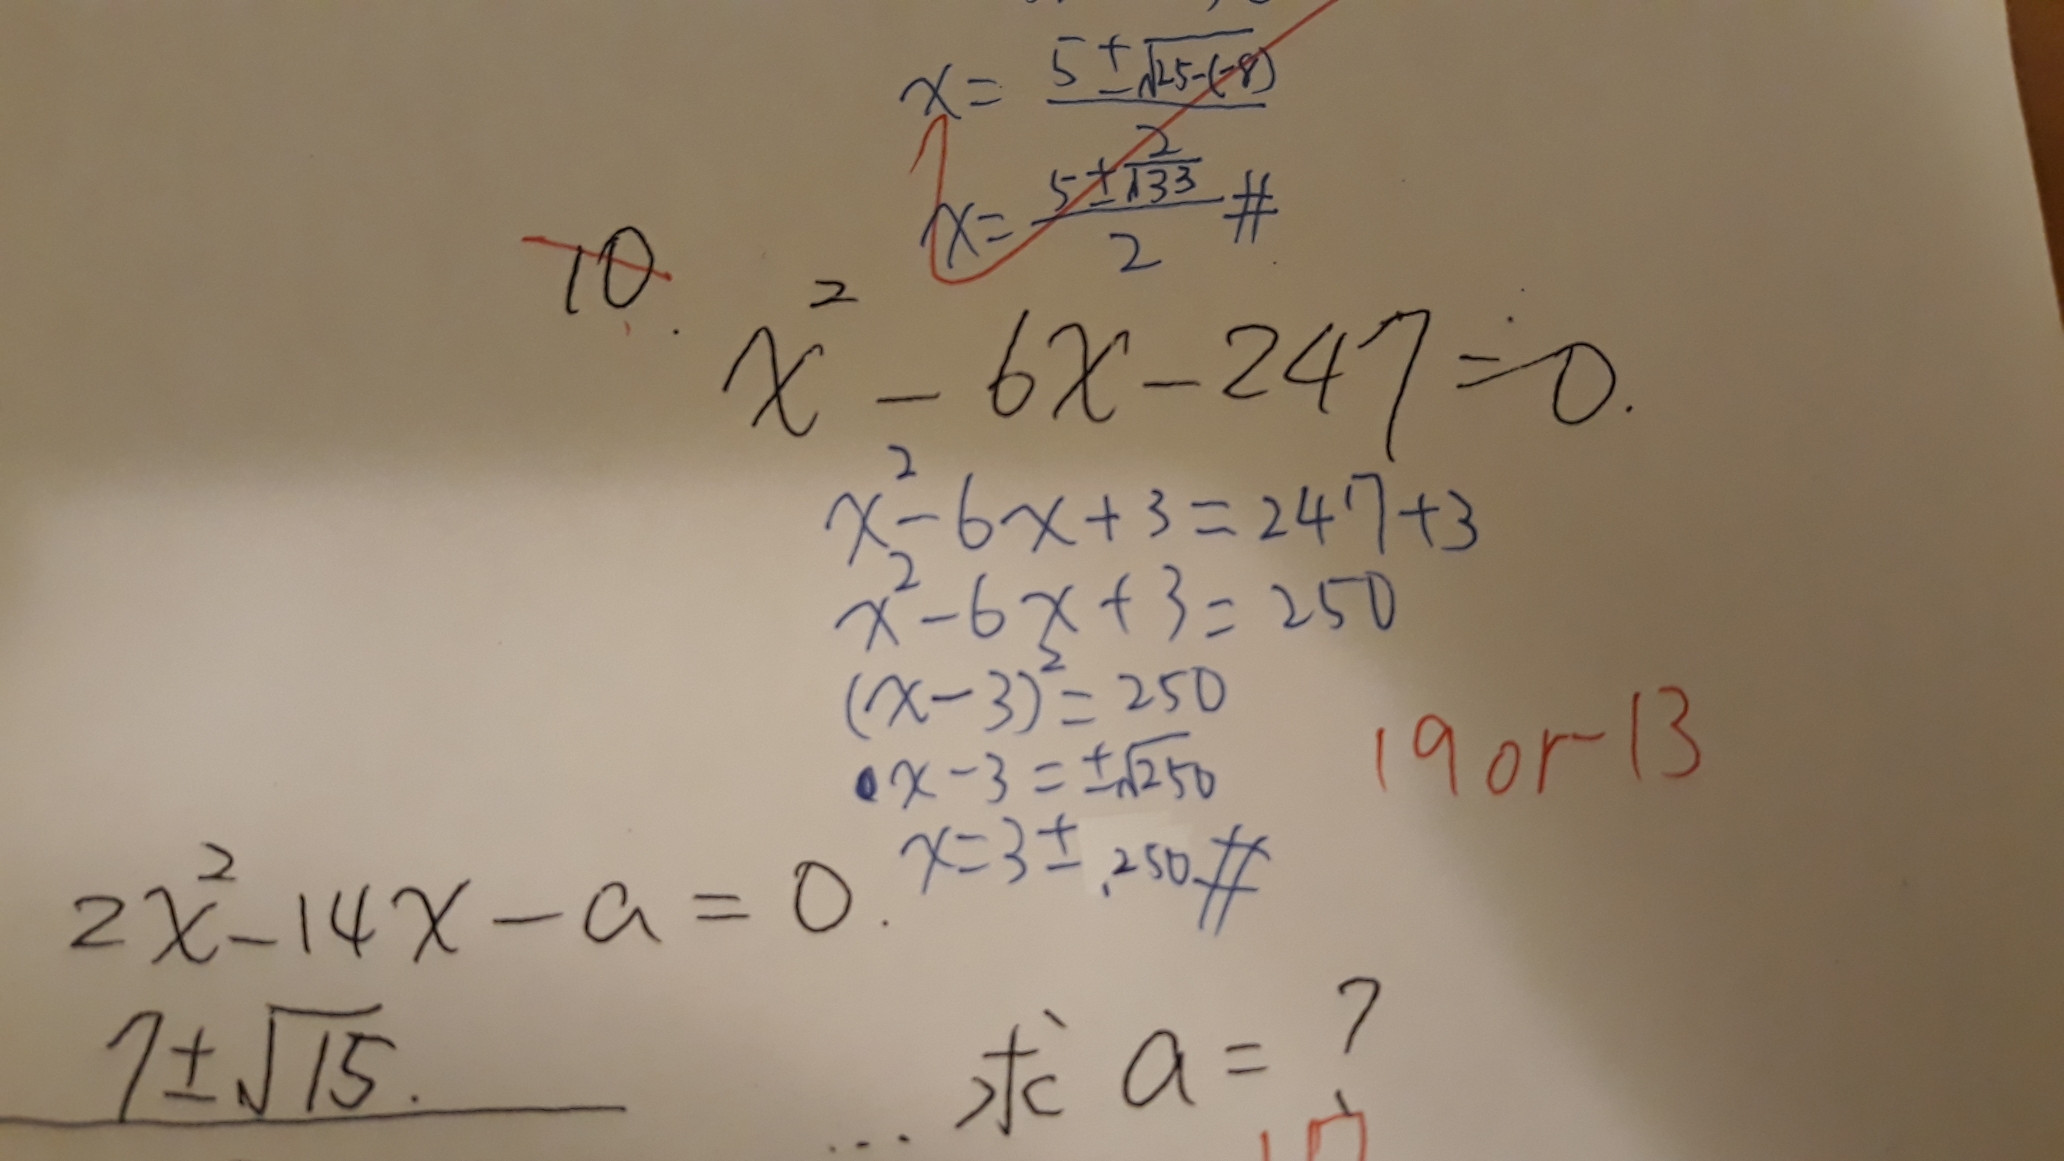 x = 5±√25-(-8) / 2
x = 5±√33 / 2 #
10.
x² - 6x - 247 = 0.
x² - 6x + 3 = 247 + 3
x² - 6x + 3 = 250
(x - 3)² = 250
x - 3 = ±√250
19 or -13
x = 3 ± .250 #
2x² - 14x - a = 0.
7±√15.
... 求 a = ?